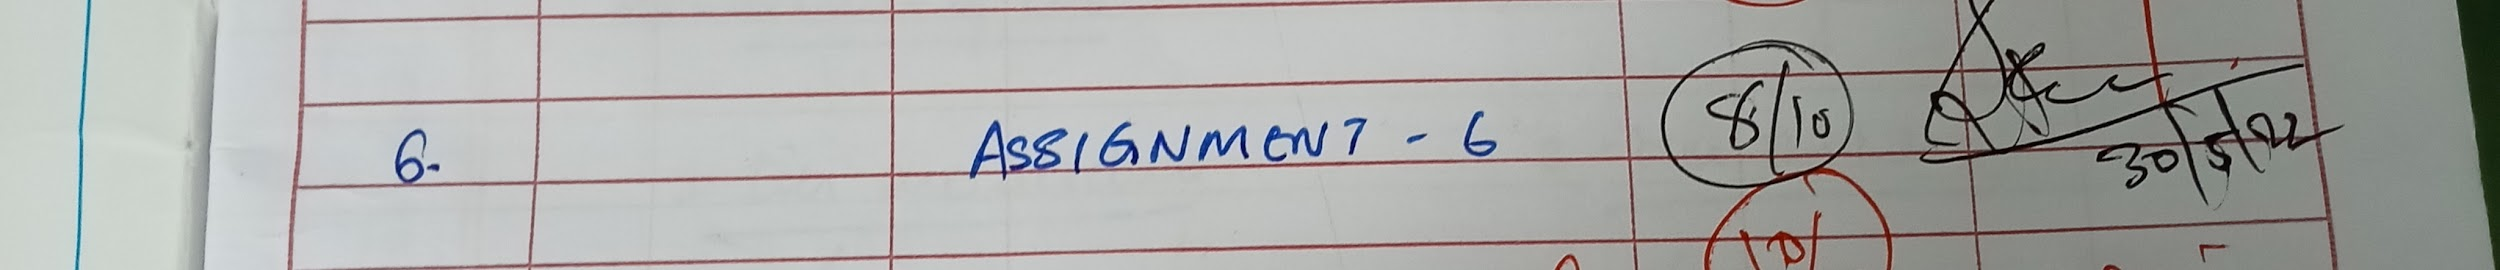 6. ASSIGNMENT - 6 8/10 30/5/22
10/